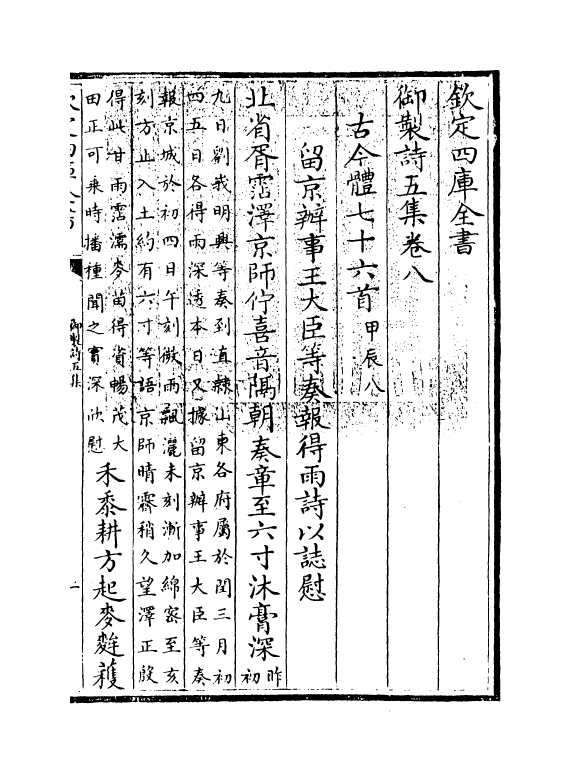 欽定四庫全書
御製詩五集卷八
古今體七十六首甲辰八
留京辦事王大臣等奏報得雨詩以誌慰
北省胥霑澤京師佇喜音隅朝奏章至六寸沐膏深昨初
九日劉峩明興等奏到直隸山東各府屬於閏三月初
四五日各得雨深透本日又據留京辦事王大臣等奏
報京城於初四日午刻微雨飄灑未刻漸加綿密至亥
刻方止入土約有六寸等語京師晴霽稍久望澤正殷
得此甘雨霑濡麥苗得資暢茂大
田正可乘時播種聞之實深欣慰禾黍耕方起麥麰穫
御製詩五集
一